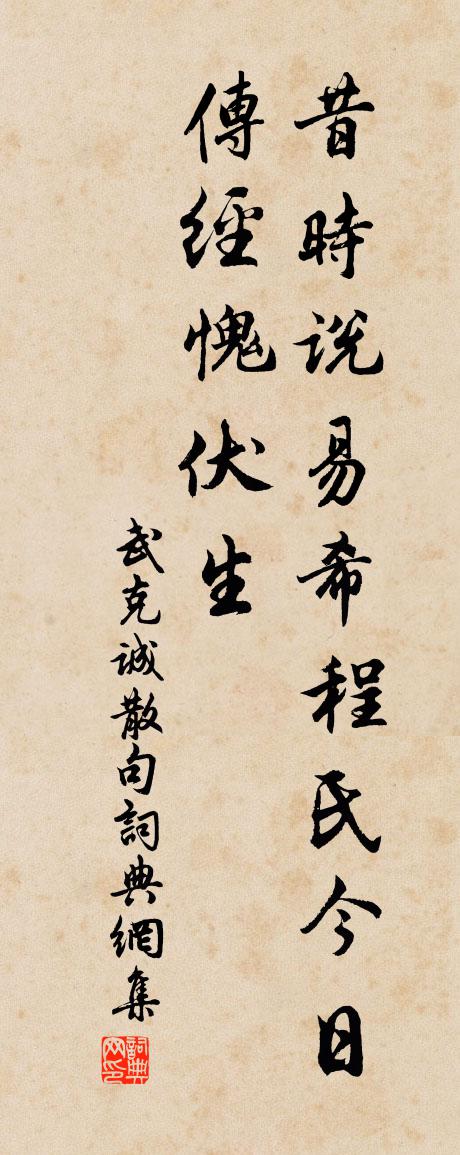 昔時説易希程氏今日
傳經愧伏生
武克誠散句詞典網集
詞典网印